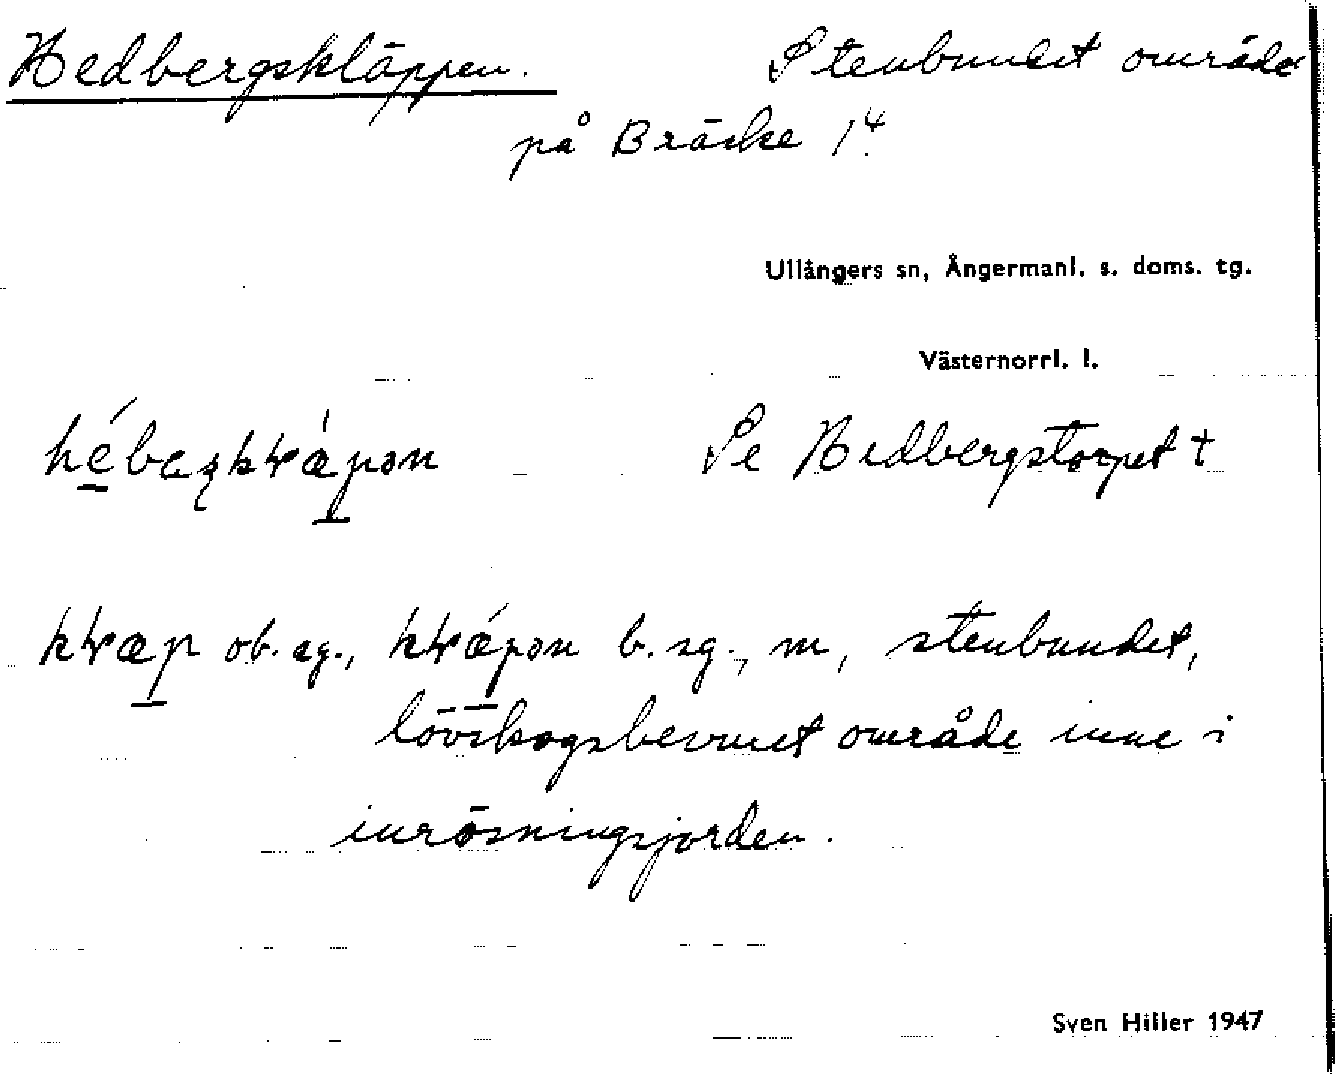 Hedbergskläppen. Stenbundet område
på Bräcke 1⁴.
Ullångers sn, Ångermanl. s. doms. tg.
Västernorrl. l.
Se Hedbergstorpet †
ob. sg., b. sg., m, stenbundet,
lövskogsbevuxet område inne i
inrösningsjorden.
Sven Hiller 1947